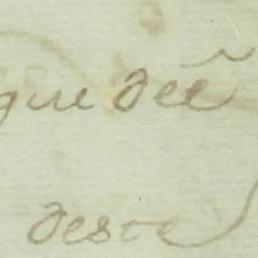 que deẽ
desta